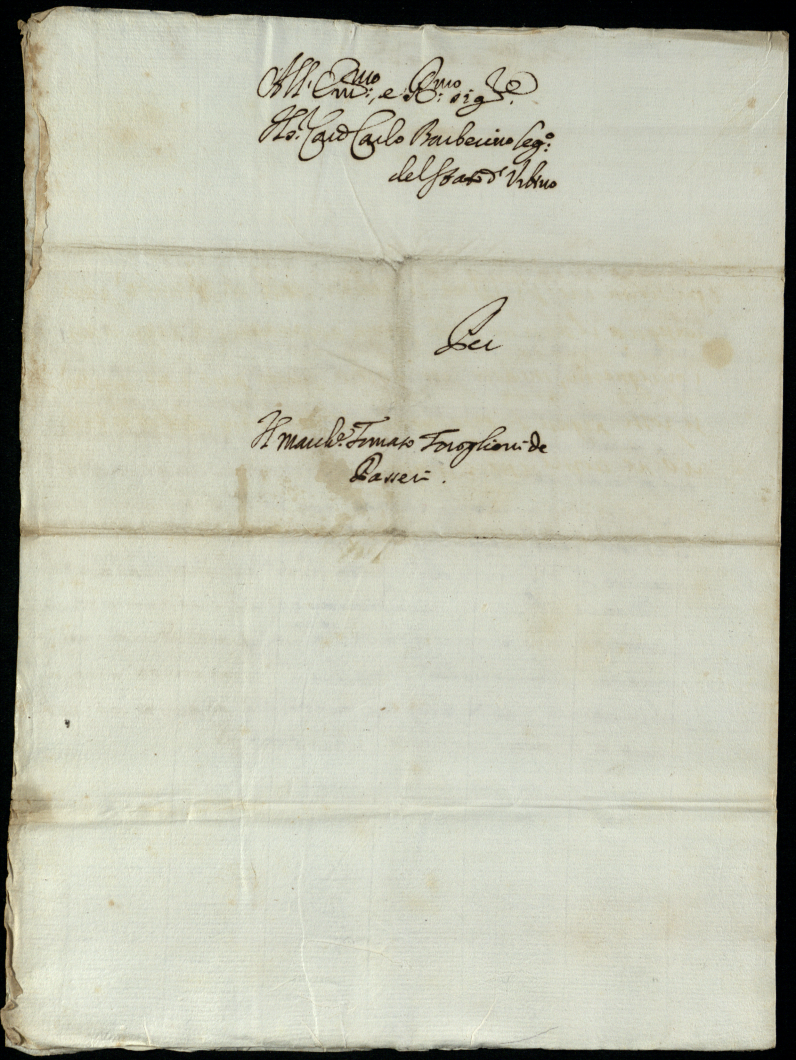 All' Em.mo, e R.mo Sig.re
Il Sig.r Card Carlo Barberino Leg.o
del Stato d' Urbino
Per
Il March.e Tomaso
Passeri.